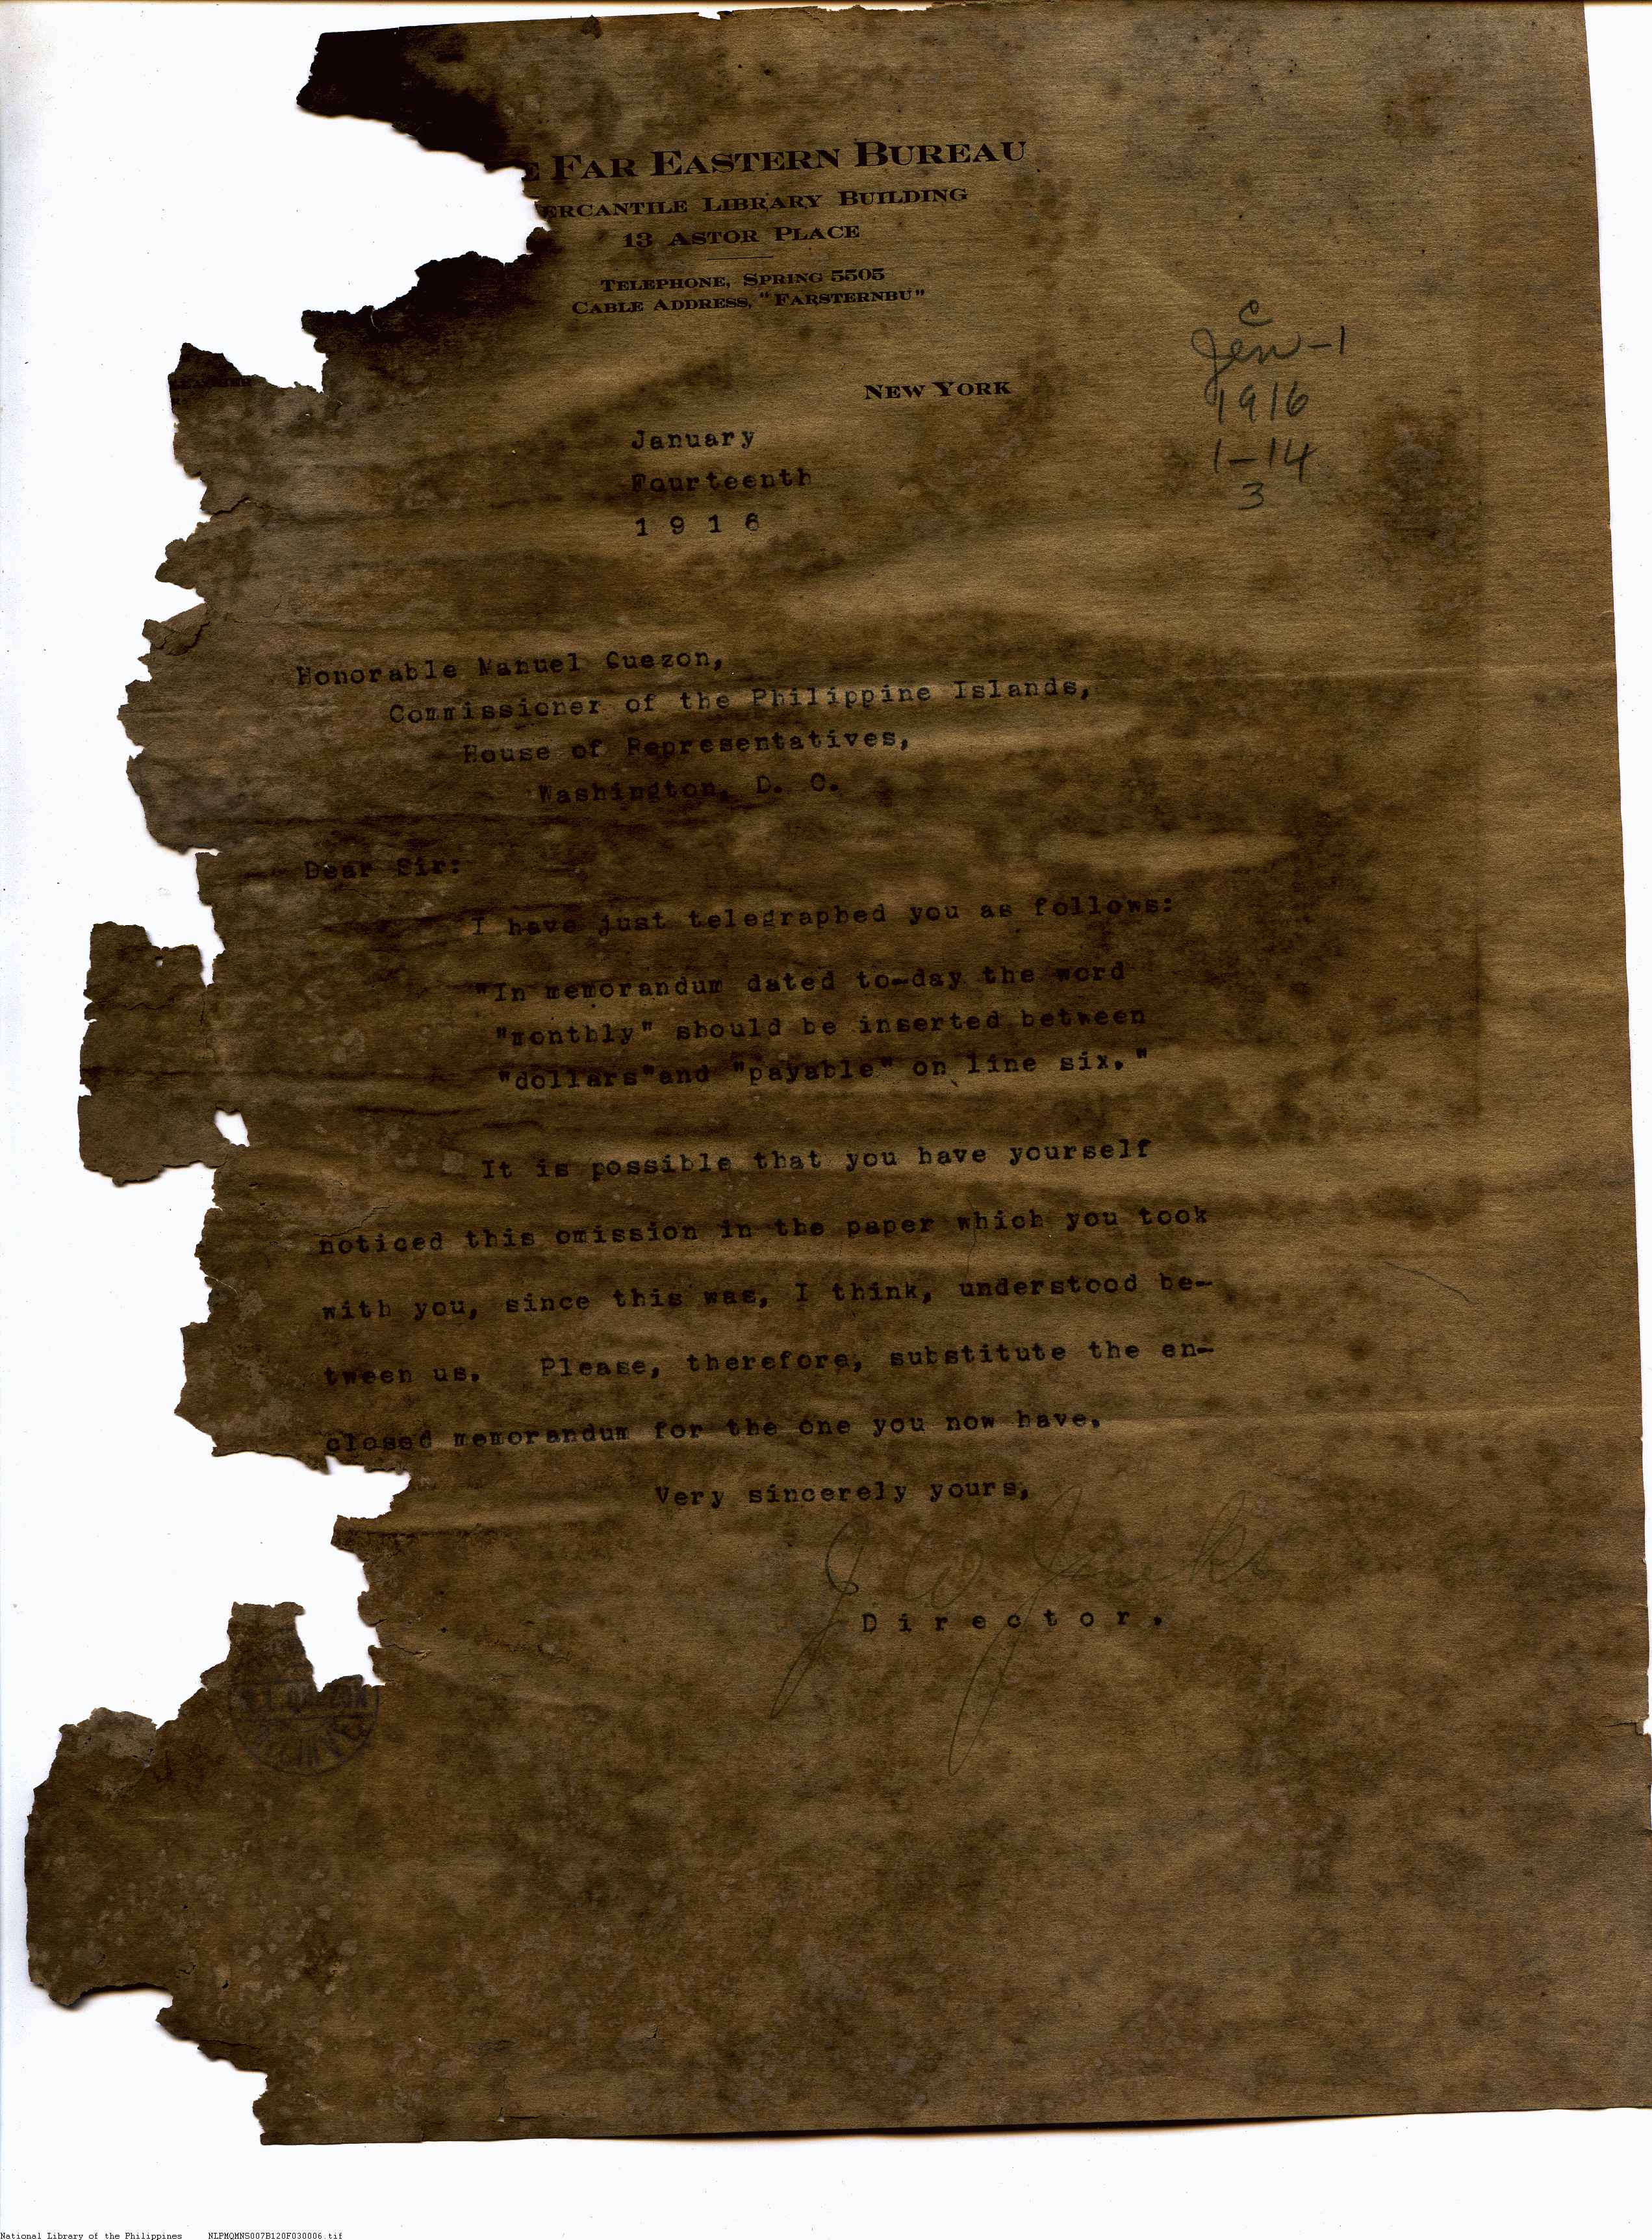 E FAR EASTERN BUREAU
ERCANTILE LIBRARY BUILDING
13 ASTOR PLACE
TELEPHONE, SPRING 5505
CABLE ADDRESS, "FARSTERNBU"
NEW YORK
C
Jen-1
1916
1-14
3
January
Fourteenth
1 9 1 6
Honorable Manuel Quezon,
Commissioner of the Philippine Islands,
House of Representatives,
Washington, D. C.
Dear Sir:
I have just telegraphed you as follows:
"In memorandum dated to-day the word
"monthly" should be inserted between
"dollars"and "payable" on line six."
It is possible that you have yourself
noticed this omission in the paper which you took
with you, since this was, I think, understood be-
tween us. Please, therefore, substitute the en-
closed memorandum for the one you now have.
Very sincerely yours,
J W Jenks
Director.
National Library of the Philippines NLPMQMNS007B120F030006.tif